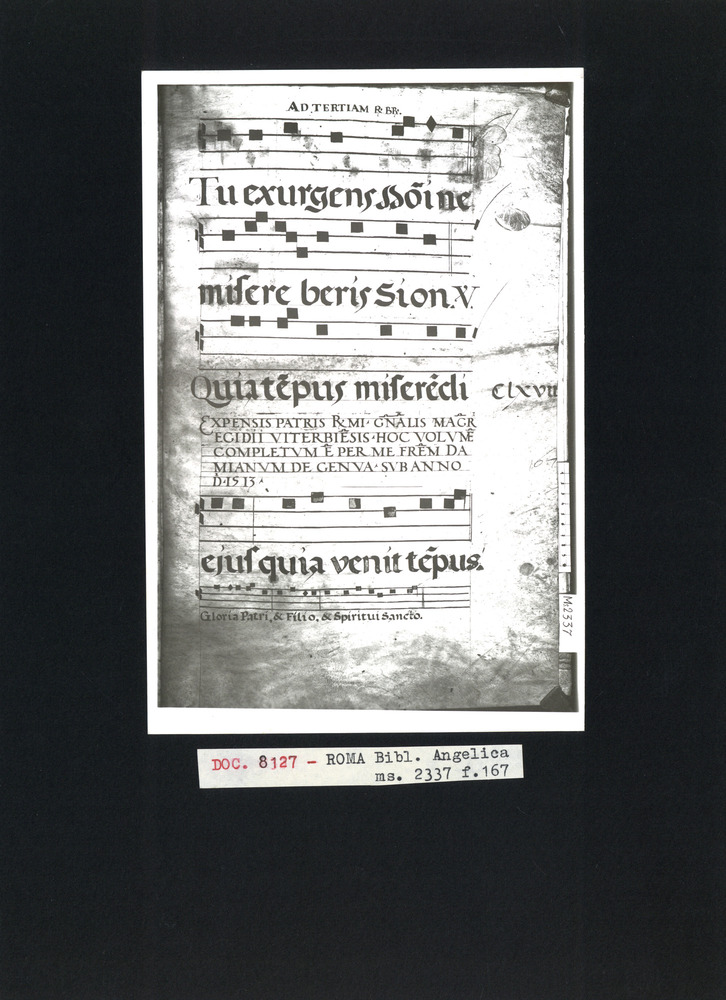 AD TERTIAM R. BR.
Tu exurgens Dõine
misere beris Sion. V.
Quia tẽpus miserẽdi
Clxvii
EXPENSIS PATRIS RMI· GÑALIS MAGR̃
EGIDII VITERBIẼSIS·HOC VOLVMẼ
COMPLETVM Ẽ PER ME FRẼM DA
MIANVM DE GENVA· SVB ANNO
D·1513·
167
ejus quia venit tẽpus.
Gloria Patri, & Filio, & Spiritui Sancto.
Ms 2337
DOC. 8127 - ROMA Bibl. Angelica
ms. 2337 f.167